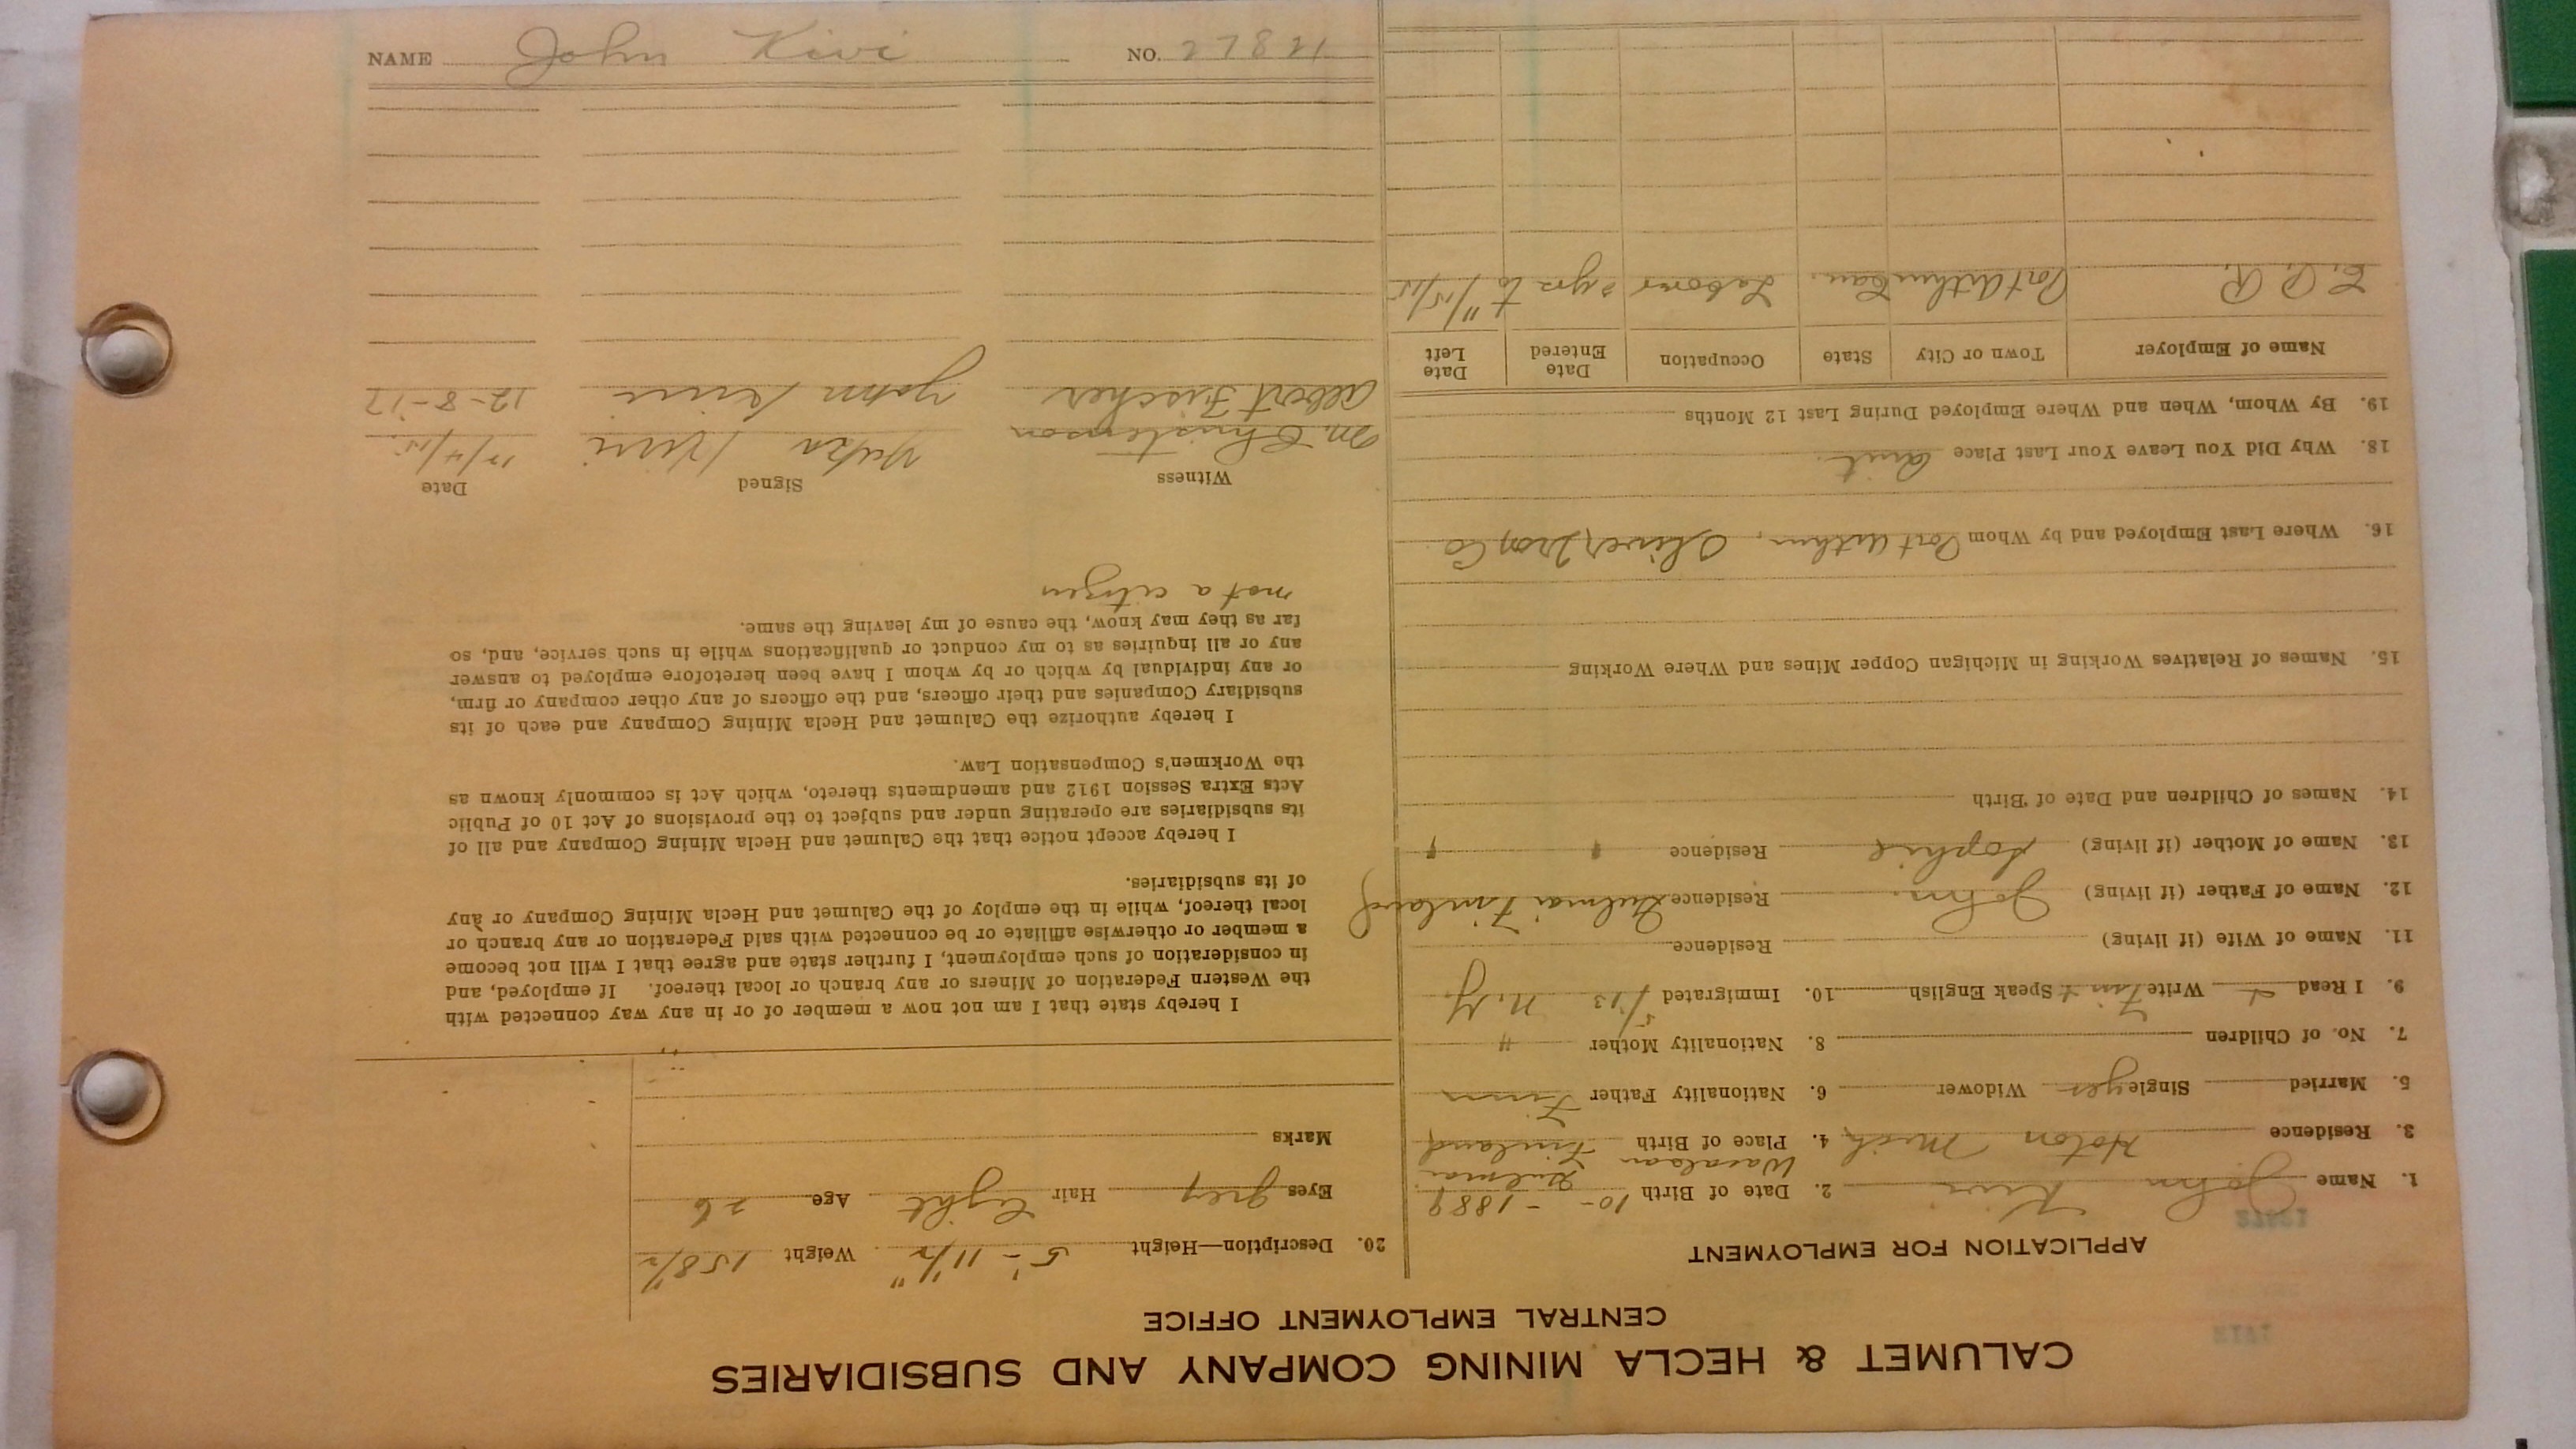 CALUMET & HECLA MINING COMPANY AND SUBSIDIARIES
CENTRAL EMPLOYMENT OFFICE
APPLICATION FOR EMPLOYMENT
1. Name John Kivi 2. Date of Birth 10- - 1889
3. Residence Hoton Mich 4. Place of Birth Finland
5. Married Single yes Widower 6. Nationality Father Finn
7. No. of Children 8. Nationality Mother "
9. I Read Write Finn Speak English 10. Immigrated 5/13 N.Y.
11. Name of Wife (if living) Residence
12. Name of Father (if living) John. Residence Finland
13. Name of Mother (if living) Sophie Residence " "
14. Names of Children and Date of Birth
15. Names of Relatives Working in Michigan Copper Mines and Where Working
16. Where Last Employed and by Whom Port Arthur, Oliver Iron Co
18. Why Did You Leave Your Last Place Quit.
19. By Whom, When and Where Employed During Last 12 Months
Name of Employer Town or City State Occupation Date Entered Date Left
C. P. R. Port Arthur Can. Laborer 2 yrs to 11/15/15
20. Description—Height 5'- 11 1/2" Weight 158 1/2
Eyes grey Hair Light Age 26
Marks
I hereby state that I am not now a member of or in any way connected with
the Western Federation of Miners or any branch or local thereof. If employed, and
in consideration of such employment, I further state and agree that I will not become
a member or otherwise affiliate or be connected with said Federation or any branch or
local thereof, while in the employ of the Calumet and Hecla Mining Company or any
of its subsidiaries.
I hereby accept notice that the Calumet and Hecla Mining Company and all of
its subsidiaries are operating under and subject to the provisions of Act 10 of Public
Acts Extra Session 1912 and amendments thereto, which Act is commonly known as
the Workmen's Compensation Law.
I hereby authorize the Calumet and Hecla Mining Company and each of its
subsidiary Companies and their officers, and the officers of any other company or firm,
or any individual by which or by whom I have been heretofore employed to answer
any or all inquiries as to my conduct or qualifications while in such service, and, so
far as they may know, the cause of my leaving the same.
not a citizen
Witness Signed Date
M. Christenson Kivi
Albert Fischer John Kivi 12-8-17
NAME John Kivi NO. 27821